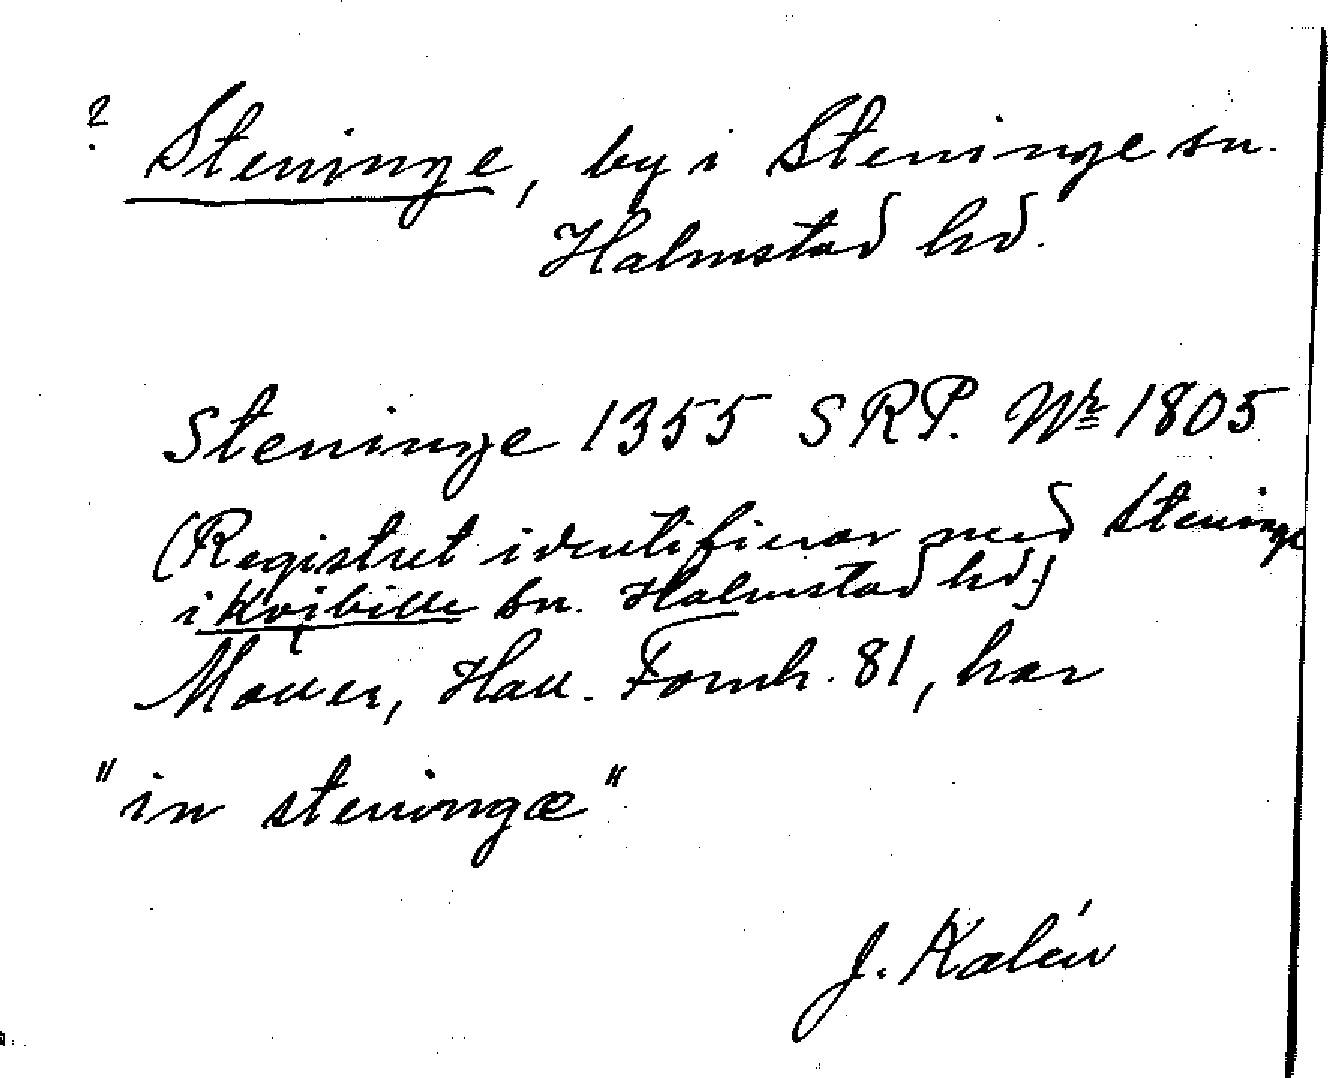 ? Steninge, by i Steninge sn.
Halmstad hd.
Steninge 1355 SRP. Nr 1805
(Registret identifierar med Steninge
i Kvibille sn. Halmstad hd.)
Möller, Hall. Fornh. 81, har
"in steningæ"
J. Kalén